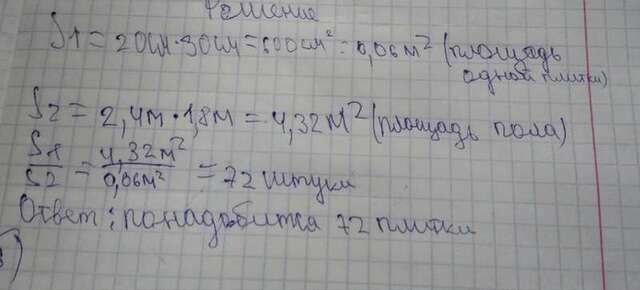 Решение
S1 = 20см · 30см = 600см² = 0,06м² (площадь
одной плитки)
S2 = 2,4м · 1,8м = 4,32м² (площадь пола)
S1/S2 = 4,32м²/0,06м² = 72 штуки
Ответ: понадобится 72 плитки